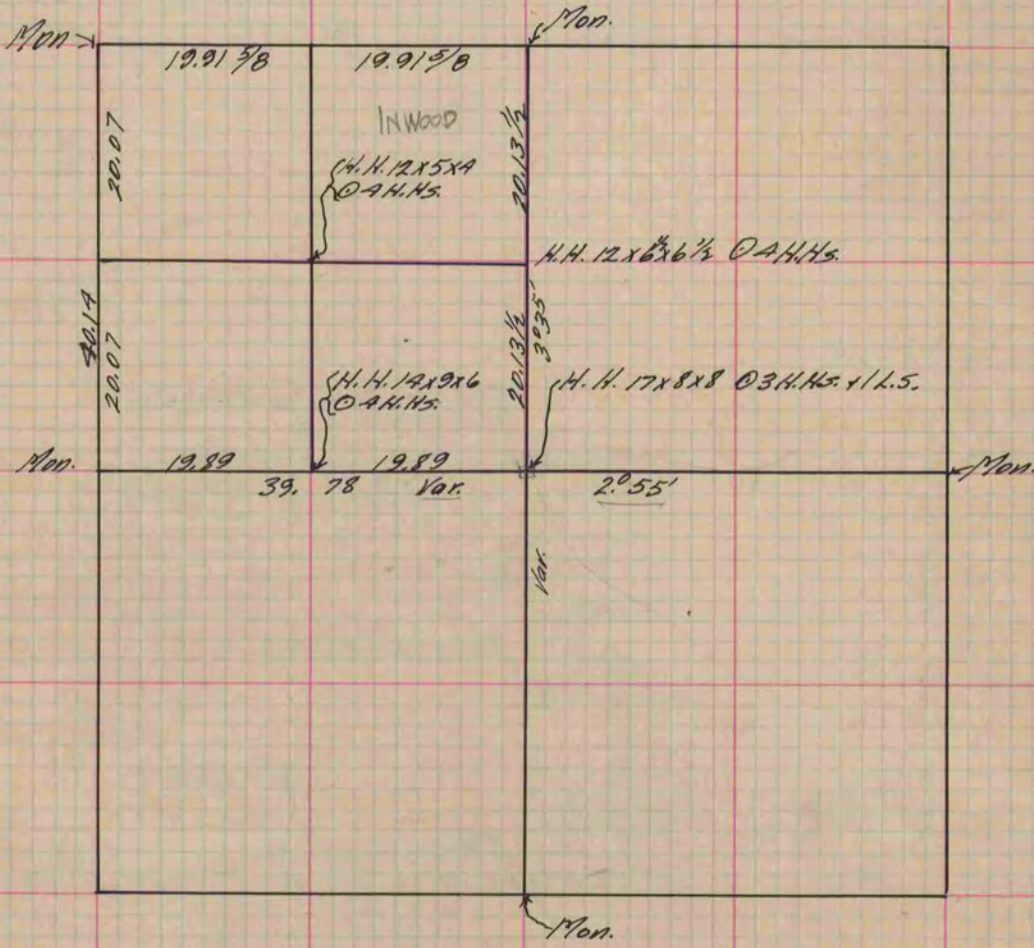 Mon
Mon.
19.91 5/8
19.91 5/8
INWOOD
20.07
20.13 1/2
H.H. 12x5x4
⊙ 4 H.Hs.
H.H. 12x6½x6½ ⊙ 4 H.Hs.
40.14
20.07
20.13 1/2
3°35'
H.H. 14x9x6
⊙ 4 H.Hs.
H.H. 17x8x8 ⊙ 3 H.Hs. + 1 L.S.
Mon.
19.89
19.89
Mon.
39. 78
Var.
2°55'
Var.
Mon.